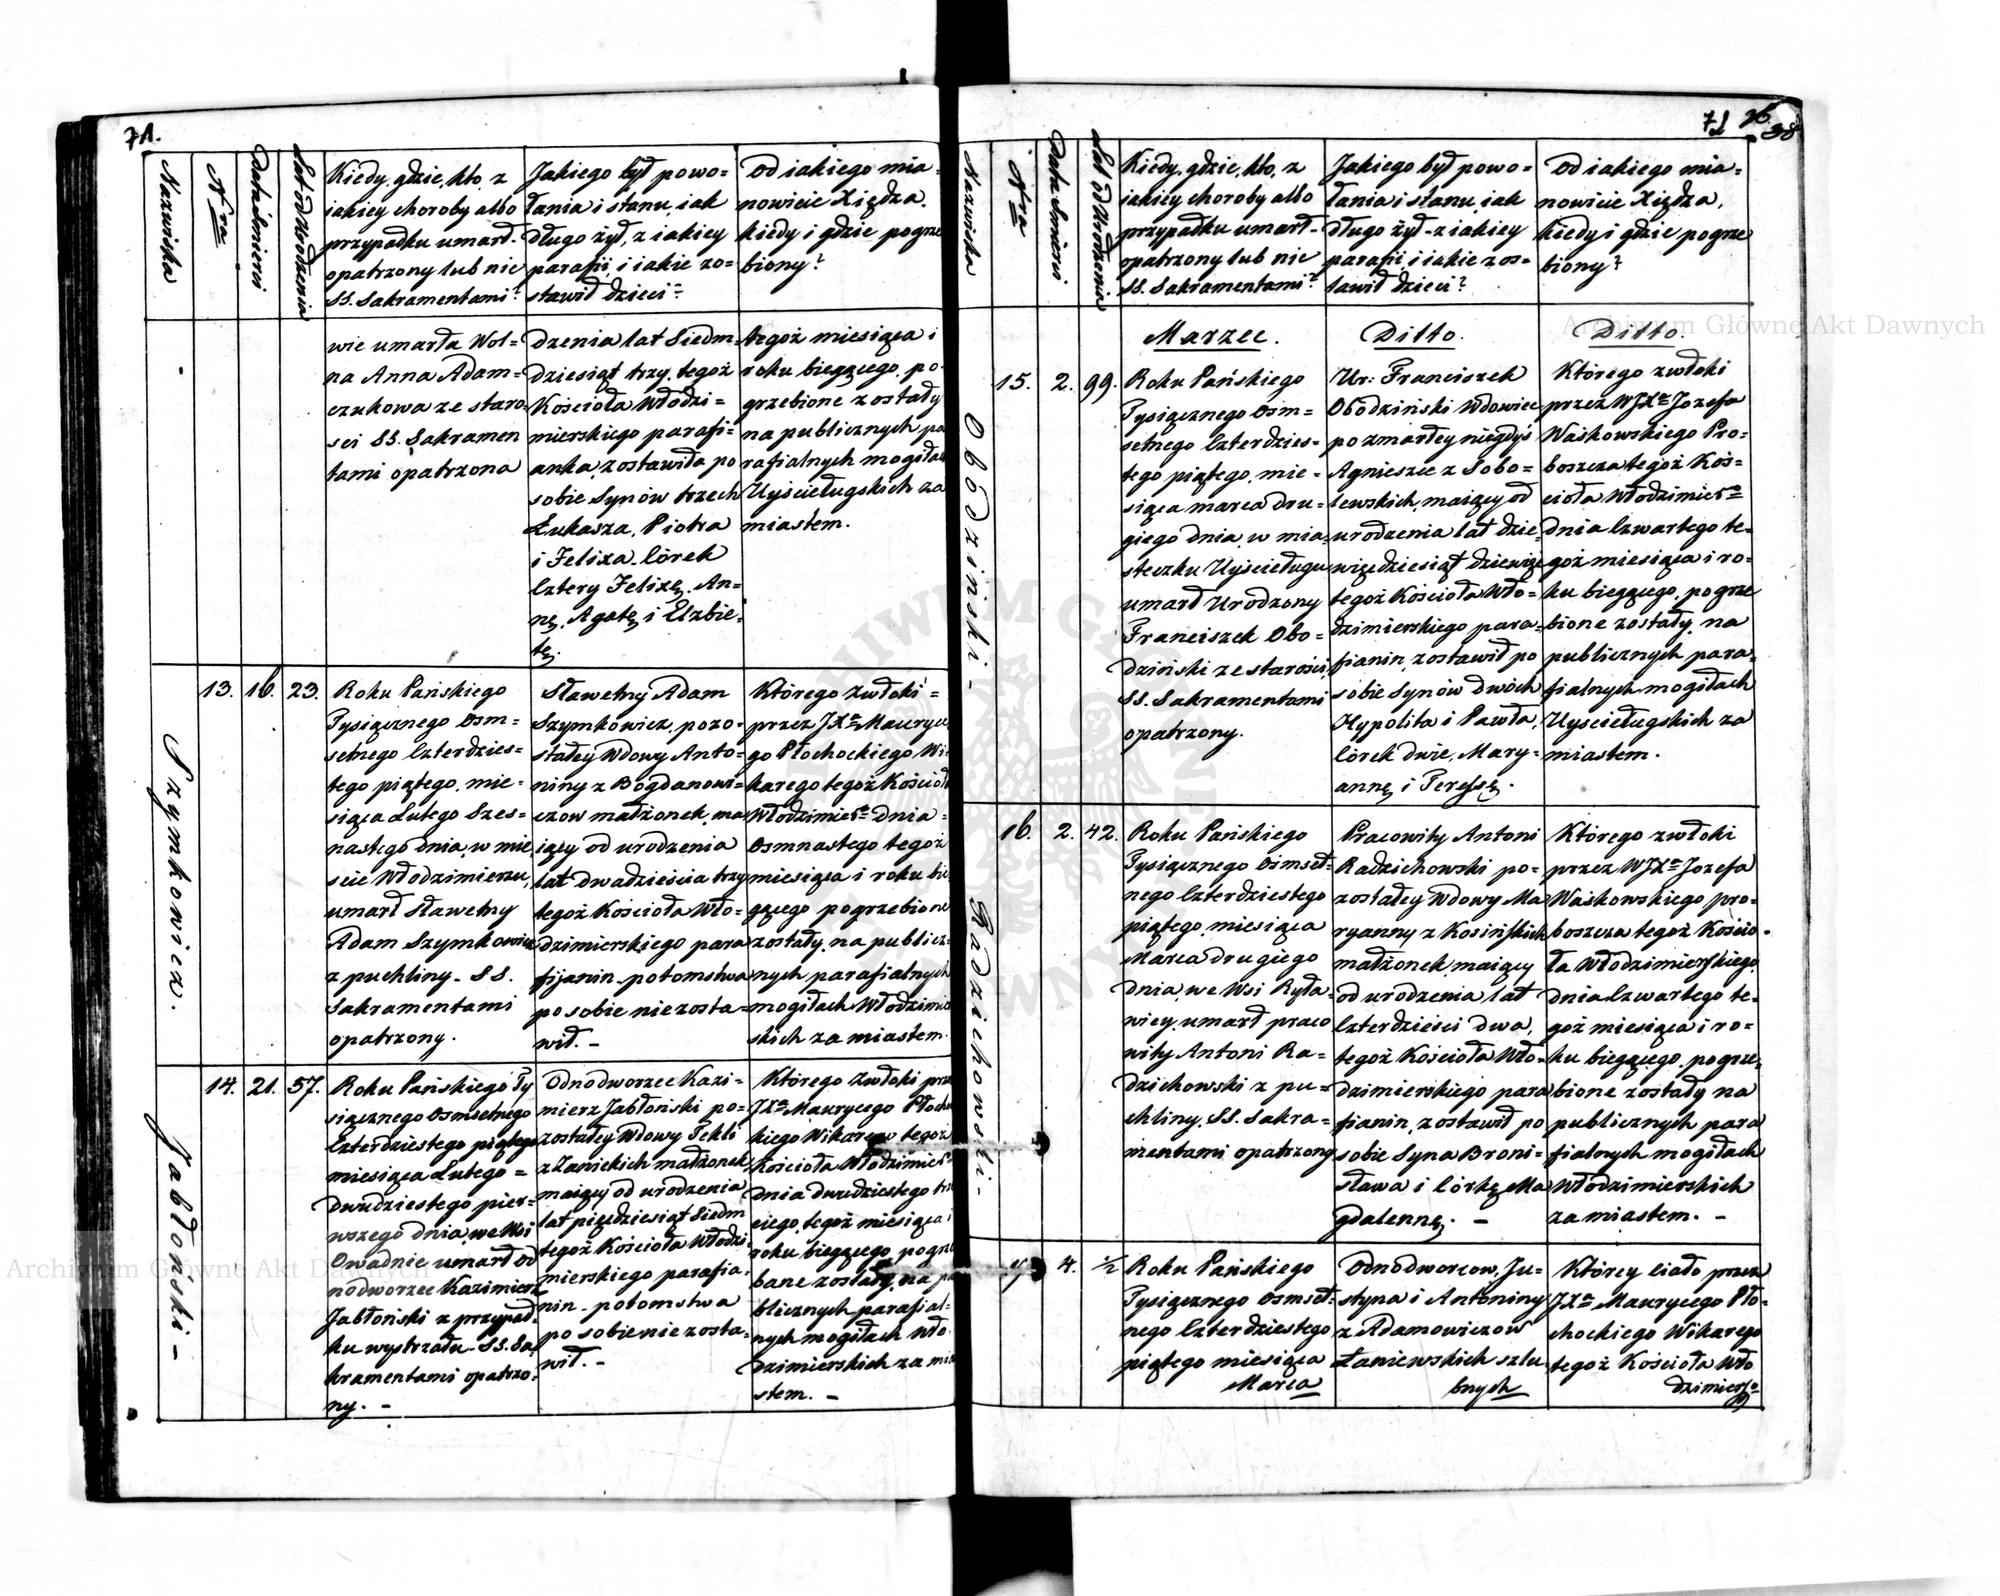 71.
Nazwiska
Nra
Data śmierci
Lat od Urodzenia
Kiedy, gdzie, kto, z
iakiey choroby albo
przypadku umarł.
opatrzony lub nie
SS. Sakramentami?
Jakiego był powo=
łania i stanu, iak
długo żył, z iakiey
parafii, i iakie zo=
stawił dzieci?
Od iakiego mia=
nowicie Xiędza,
kiedy i gdzie pogrze
biony?
wie umarła Wol=
na Anna Adam=
czukowa ze staro=
ści SS. Sakramen
tami opatrzona
dzenia lat Siedm=
dziesiąt trzy, tegoż
Kościoła Włodzi=
mierskiego parafi=
anka, zostawiła po
sobie Synów trzech
Łukasza, Piotra
i Felixa, Córek
Cztery Felixę, An=
nę, Agatę i Elzbie=
tę.
tegoż miesiąca i
roku biegącego, po
grzebione zostały
na publicznych pa
rafialnych mogiłach
Uyścieługskich za
miastem.
Szymkowicz.
13.
16.
23.
Roku Pańskiego
Tysiącznego Osm=
setnego Czterdzies=
tego piątego, mie=
siąca Lutego Szes=
nastego dnia, w mie
ście Włodzimierzu,
umarł Sławetny
Adam Szymkowicz
z puchliny. SS.
Sakramentami
opatrzony.
Sławetny Adam
Szymkowicz, pozo=
stałey Wdowy Anto=
niny z Bogdanowi=
czow małżonek, ma
iący od urodzenia
lat dwadzieścia trzy
tegoż Kościoła Wło=
dzimierskiego para
fijanin, potomstwa
po sobie nie zosta=
wił. –
Którego zwłoki =
przez JXa Mauryce
go Płochockiego Wi=
karego tegoż Kościoła
Włodzimierso dnia =
Osmnastego tegoż
miesiąca i roku bie
gącego pogrzebione
zostały, na publicz=
nych parafialnych
mogiłach Włodzimier
skich za miastem.
Jabłoński –
14.
21.
57.
Roku Pańskiego Ty
siącznego Osmsetnego
Czterdziestego piątego
miesiąca Lutego =
Dwudziestego pier=
wszego dnia, we Wsi
Owadnie umarł Od
nodworzec Kazimierz
Jabłoński z przypad=
ku wystrzału. SS. Sa
kramentami opatrzo=
ny. –
Odnodworzec Kazi=
mierz Jabłoński po=
zostałey Wdowy Tekli
z Zanickich małżonek
maiący od urodzenia
lat pięćdziesiąt Siedm
tegoż Kościoła Włodzi
mierskiego parafia=
nin, potomstwa
po sobie nie zosta=
wił. –
Którego zwłoki prze
JXa Maurycego Płocho
kiego Wikarego tegoż
Kościoła Włodzimierso
dnia dwudziestego trze
ciego, tegoż miesiąca i
roku biegącego, pogrze
bane zostały, na pu
blicznych parafial=
nych mogiłach Wło
dzimierskich za mia
stem. –
71
38
Nazwiska
Nra
Data Smierci
Lat od Urodzenia
Kiedy, gdzie, kto, z
iakiey choroby albo
przypadku umarł.
opatrzony lub nie
SS. Sakramentami?
Jakiego był powo=
łania i stanu, iak
długo żył, z iakiey
parafii i iakie zos=
tawił dzieci?
Od iakiego mia=
nowicie Xiędza,
kiedy i gdzie pogrze
biony?
Marzec.
Ditto.
Ditto.
Obodziński –
15.
2.
99.
Roku Pańskiego
Tysiącznego Osm=
setnego Czterdzies=
tego piątego, mie=
siąca marca dru=
giego dnia, w mia=
steczku Uyścieługu
umarł Urodzony
Franciszek Obo=
dziński ze starości
SS. Sakramentami
opatrzony.
Ur: Franciszek
Obodziński Wdowiec
po zmarłey niegdyś
Agnieszce z Sobo=
lewskich, maiący od
urodzenia lat dzie=
więćdziesiąt dziewięć
tegoż Kościoła Wło=
dzimierskiego para=
fianin, zostawił po
sobie Synów dwóch
Hypolita i Pawła,
Córek dwie, Mary=
annę i Teressę.
Którego zwłoki
przez WJXa Jozefa
Waśkowskiego Pro=
boszcza tegoż Koś=
cioła Włodzimierso
dnia Czwartego te=
goż miesiąca i ro=
ku biegącego, pogrze
bione zostały, na
publicznych para=
fialnych mogiłach
Uyścieługskich za
miastem.
Radzichowski –
16.
2.
42.
Roku Pańskiego
Tysiącznego Osmset=
nego Czterdziestego
piątego, miesiąca
Marca drugiego
dnia, we Wsi Ryła=
wicy, umarł praco
wity Antoni Ra=
dzichowski z pu=
chliny, SS. Sakra=
mentami opatrzony
Pracowity Antoni
Radzichowski po=
zostałey Wdowy Ma
ryanny z Kosińskich
małżonek, maiący
od urodzenia lat
Czterdzieści dwa,
tegoż Kościoła Wło=
dzimierskiego para
fianin, zostawił po
sobie Syna Broni=
sława i Córkę Ma
gdalennę. –
Którego zwłoki
przez WJXa Jozefa
Waśkowskiego pro=
boszcza tegoż Kościo=
ła Włodzimierskiego,
dnia Czwartego te=
goż miesiąca i ro=
ku biegącego, pogrze=
bione zostały na
publicznych para
fialnych mogiłach
Włodzimierskich
za miastem. –
4.
½
Roku Pańskiego
Tysiącznego Osmset=
nego Czterdziestego
piątego miesiąca
Marca
Odnodworcow, Ju=
styna i Antoniny
z Adamowiczow
Łaniewskich szlu
bnych
Którey Ciało przez
JXa Maurycego Pło=
chockiego Wikarego
tegoż Kościoła Wło
dzimierso
Archiwum Główne Akt Dawnych
Archiwum Główne Akt Dawnych